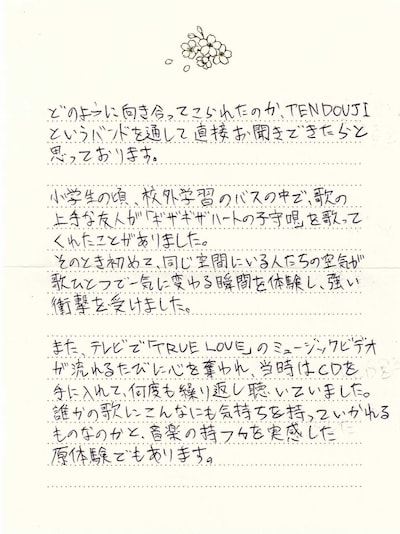 どのように向き合ってこられたのか、TENDOUJI
というバンドを通して直接お聞きできたらと
思っております。
小学生の頃、校外学習のバスの中で、歌の
上手な友人が「ギザギザハートの子守唄」を歌って
くれたことがありました。
そのとき初めて、同じ空間にいる人たちの空気が
歌ひとつで一気に変わる瞬間を体験し、強い
衝撃を受けました。
また、テレビで「TRUE LOVE」のミュージックビデオ
が流れるたびに心を奪われ、当時はCDを
手に入れて、何度も繰り返し聴いていました。
誰かの歌にこんなにも気持ちを持っていかれる
ものなのかと、音楽の持つ力を実感した
原体験でもあります。